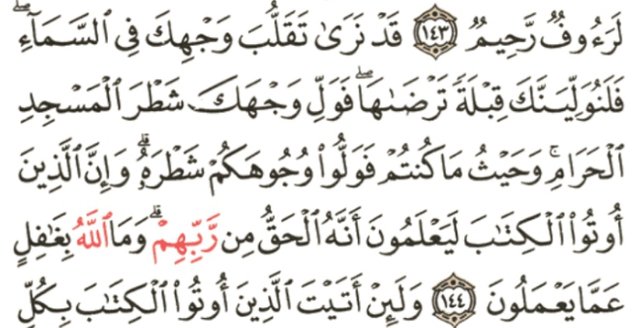 لَرَءُوفٌ رَّحِيمٌ ١٤٣ قَدْ نَرَىٰ تَقَلُّبَ وَجْهِكَ فِي السَّمَآءِۖ
فَلَنُوَلِّيَنَّكَ قِبْلَةً تَرْضَىٰهَاۖ فَوَلِّ وَجْهَكَ شَطْرَ الْمَسْجِدِ
الْحَرَامِۚ وَحَيْثُ مَا كُنتُمْ فَوَلُّوا۟ وُجُوهَكُمْ شَطْرَهُۥۗ وَإِنَّ الَّذِينَ
أُوتُوا۟ الْكِتَٰبَ لَيَعْلَمُونَ أَنَّهُ الْحَقُّ مِن رَّبِّهِمْۗ وَمَا اللَّهُ بِغَٰفِلٍ
عَمَّا يَعْمَلُونَ ١٤٤ وَلَئِنْ أَتَيْتَ الَّذِينَ أُوتُوا۟ الْكِتَٰبَ بِكُلِّ